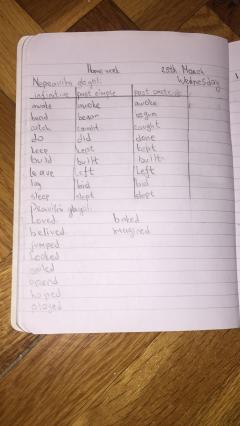 Home work 25th March
Wednesday
Nepravilni glagoli:
infinitive past simple past participle
awake awoke awoke
began begun
catch caught caught
do did done
keep kept kept
build built built
leave left left
lay laid laid
sleep slept slept
Pravilni glagoli:
Loved baked
belived imagined
jumped
Looked
helped
played